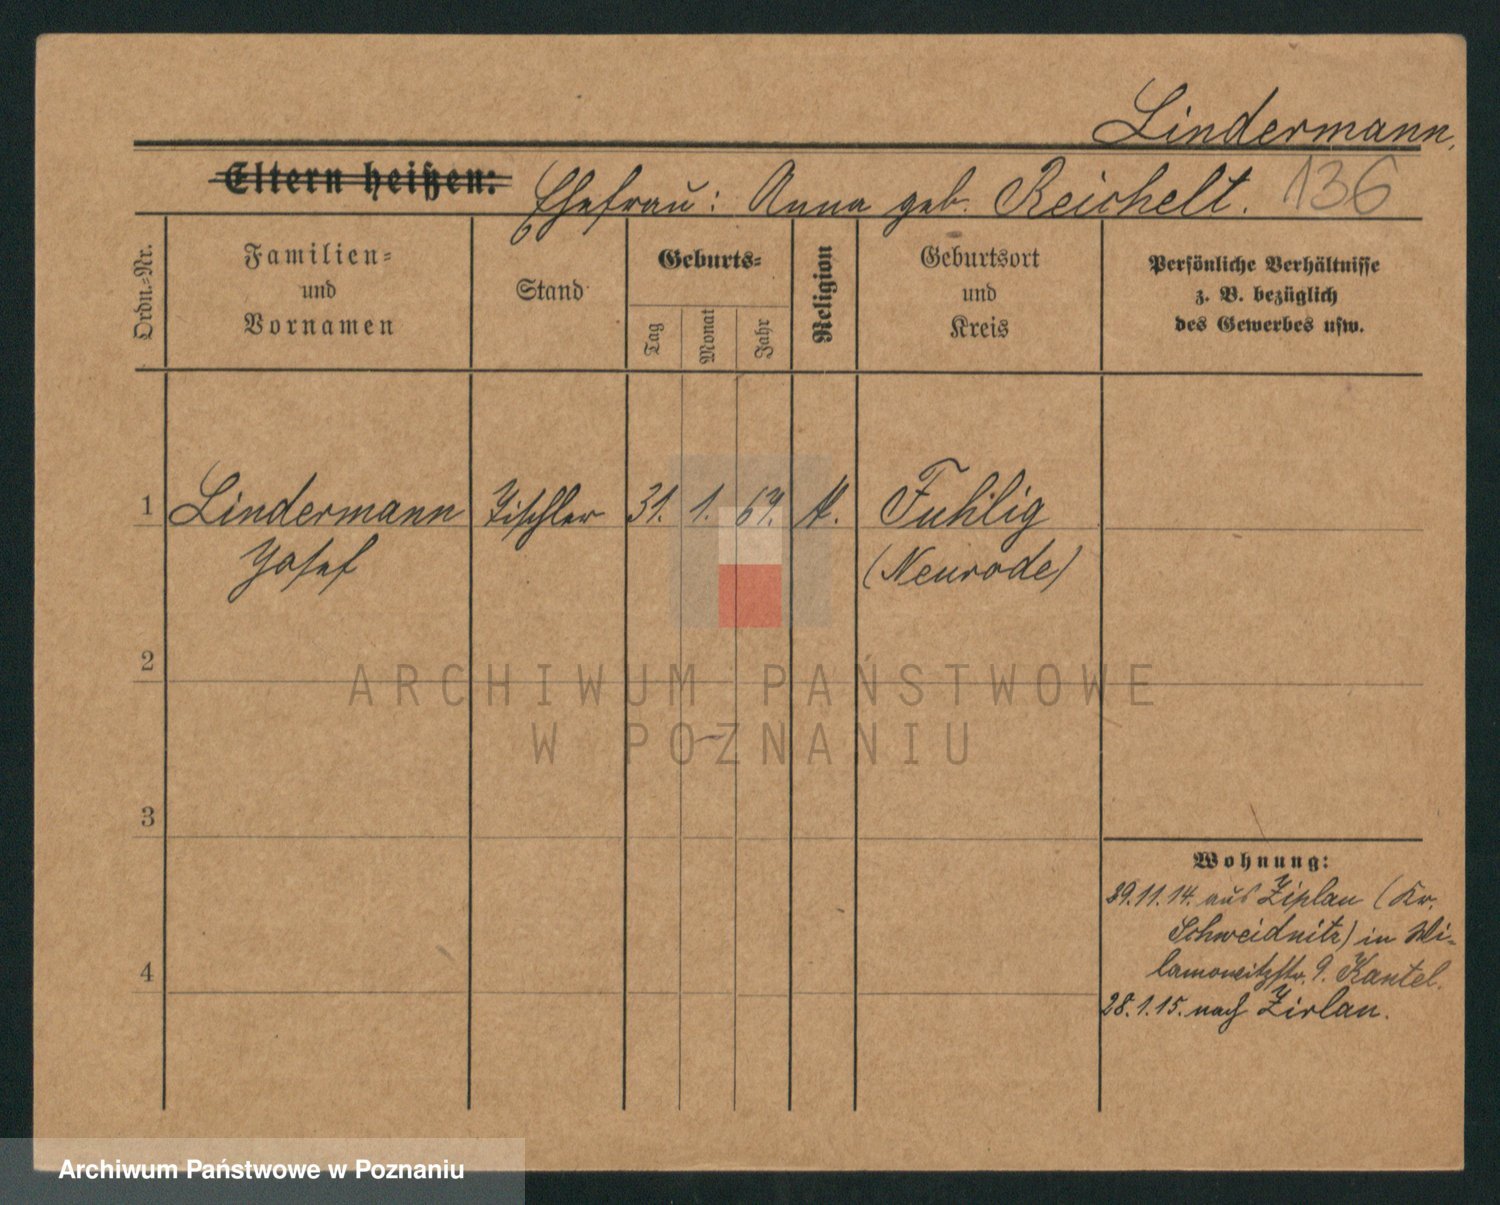 Lindermann.
Eltern heißen: Ehefrau: Anna geb. Reichelt. 136
Ordn.-Nr.
Familien=
und
Vornamen
Stand
Geburts=
Tag
Monat
Jahr
Religion
Geburtsort
und
Kreis
Persönliche Verhältnisse
z. B. bezüglich
des Gewerbes usw.
1 Lindermann Tischler 31. 1. 67. K. Fuhlig
Josef (Neurode)
2
3
4
Wohnung:
29.11.14. aus Ziplau (Kr.
Schweidnitz) in Wi-
lamowitzstr. 9. Kantel.
28.1.15. nach Zirlau.
ARCHIWUM PAŃSTWOWE
W POZNANIU
Archiwum Państwowe w Poznaniu